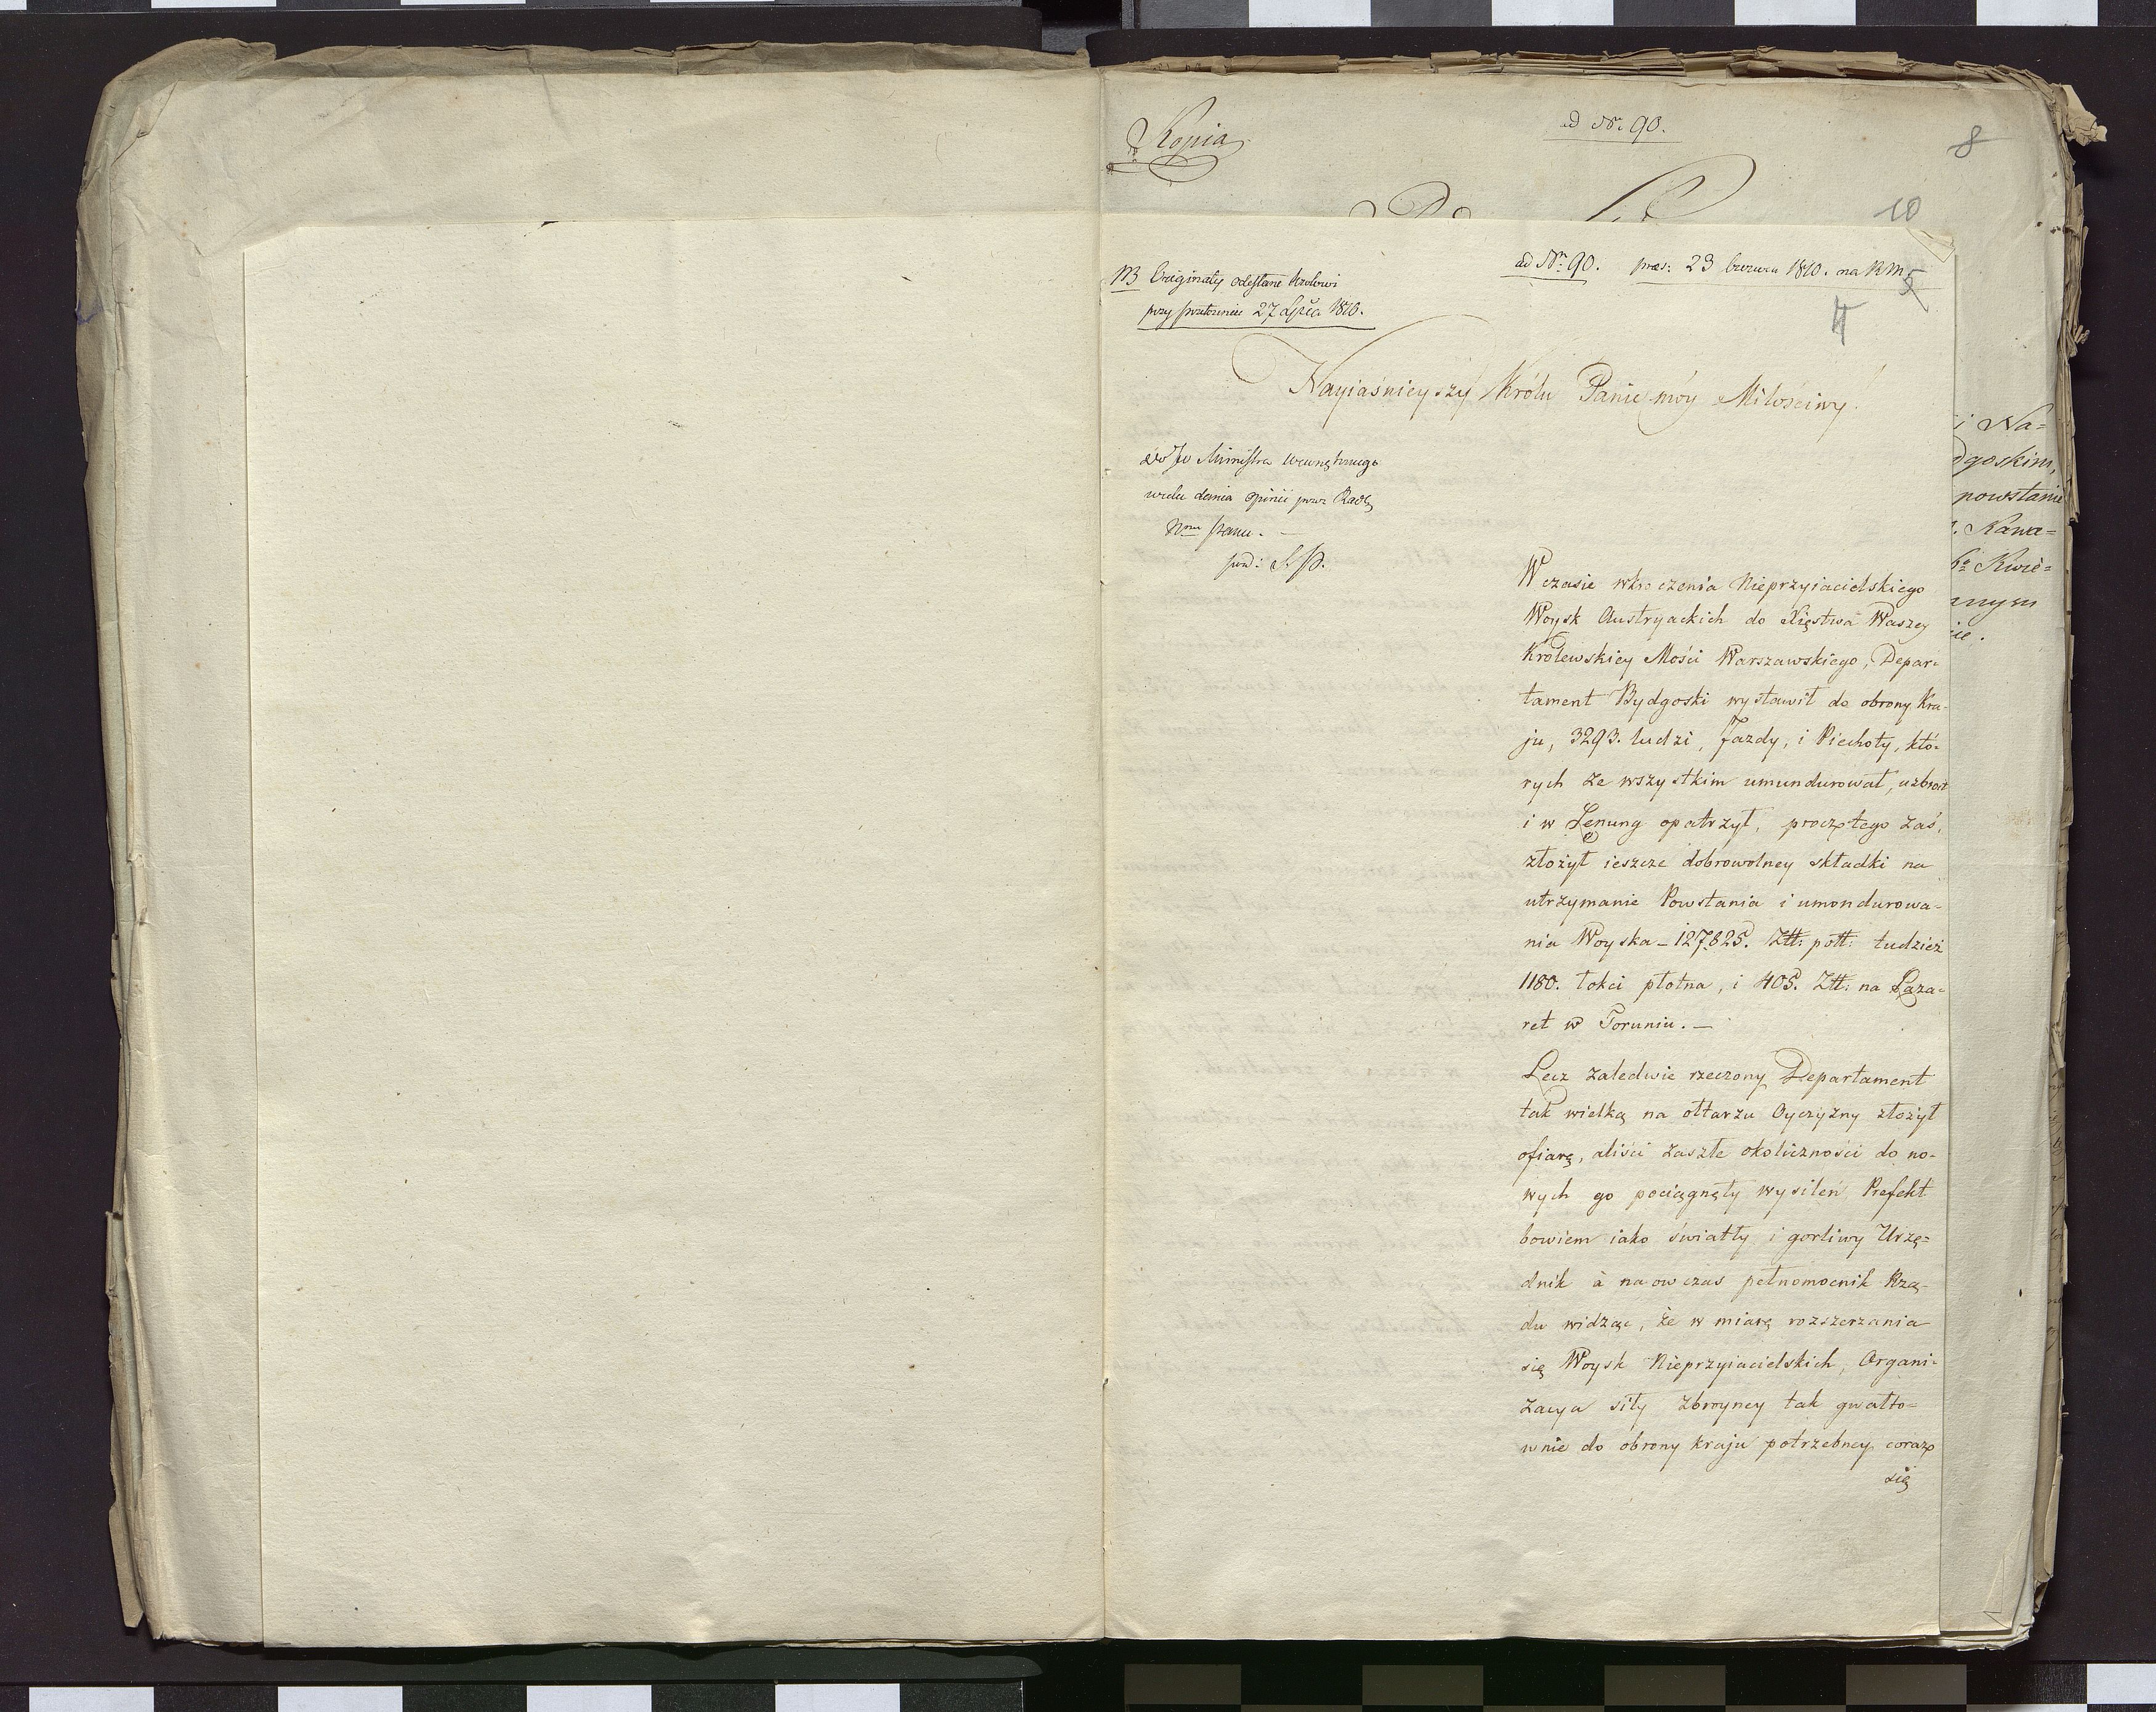 Kopia
ad Nr. 90.
8
10
ad Nr. 90. præs: 23 Czerwca 1810. na RM.
5
4
NB Originały odesłane Krolowi
przy przełożeniu 27 Lipca 1810.
Nayiaśnieyszy Królu Panie móy Miłościwy.
do JW Ministra wewnętrznego
wcelu dania opinii przez Radę
Stanu. —
S. P.
W czasie wkroczenia Nieprzyiacielskiego
Woysk Austryackich do Xięstwa Waszey
Krolewskiey Mości Warszawskiego, Depar-
tament Bydgoski wystawił do obrony Kra-
ju, 3293. ludzi, Jazdy, i Piechoty, któ-
rych ze wszystkim umundurował, uzbroił
i w Lenung opatrzył, procz tego zaś,
złożył ieszcze dobrowolney składki na
utrzymanie Powstania i umondurowa-
nia Woyska – 127,625. Złł: poll: tudzież
1180. łokci płotna, i 405. Złł: na Laza-
ret w Toruniu. —
Lecz zaledwie rzeczony Departament
tak wielką na ołtarzu Oyczyzny złożył
ofiarę, aliści zaszłe okoliczności do no-
wych go pociągnęły wysileń, Prefekt
bowiem iako światły i gorliwy Urzę-
dnik à naowczas pełnomocnik Rzą-
du widząc, że w miarę rozszerzania
się Woysk Nieprzyiacielskich, Organi-
zacya siły zbroyney tak gwałto-
wnie do obrony kraju potrzebney coraz
się
i Na=
dgoskim,
powstanie
. Kawa=
Kwie=
nnym
ie.